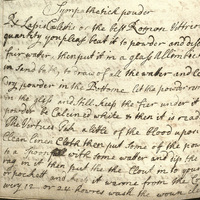 Sympathetick powder
Re Lapis Calaminaris or the best Roman Vittrio
quantity you pleas beat it to powder and diss
fair water, then put it in a glass
in Sand to draw of all the water and le
Dry powder in the Bottome. let the powder rem
in the glass and Still keep the fier under it
powder be Calcined white & then it is read
The Virtues Take a little of the blood upon
Clean Linen Cloth then put Some of the po
to a Spoon with Some water and dip the
rag in it then put the the Clout in to your
pocket and keep it warme from the C
very 12. or 24 howers wash the woun